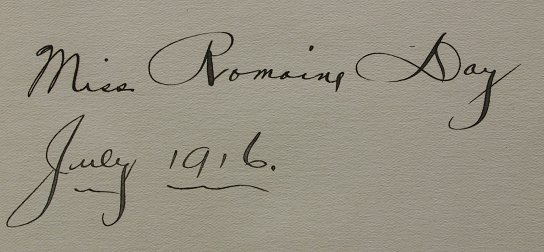 Miss Romaine Day
July 1916.